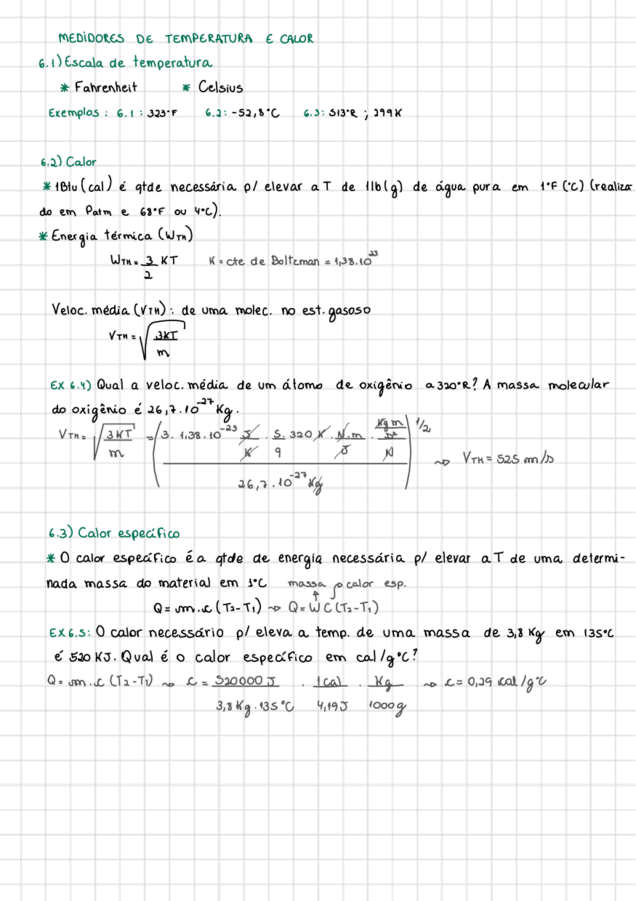 MEDIDORES DE TEMPERATURA E CALOR
6.1) Escala de temperatura
* Fahrenheit * Celsius
Exemplos : 6.1 : 323°F 6.2: -52,8°C 6.3: 513°R ; 299K
6.2) Calor
* 1Btu (cal) é qtde necessária p/ elevar a T de 1lb(g) de água pura em 1°F (°C) (realiza
do em Patm e 68°F ou 4°C).
* Energia térmica (WTH)
WTH = 3/2 KT K = cte de Boltzman = 1,38.10^23
Veloc. média (VTH) : de uma molec. no est. gasoso
VTH = √(3KT/m)
EX 6.4) Qual a veloc. média de um átomo de oxigênio a 320°R? A massa molecular
do oxigênio é 26,7.10^-27 Kg.
VTH = √(3KT/m) = (3. 1,38.10^-23 J/K . 5/9 . 320 K . N.m/J . (Kg m/s²)/N / 26,7.10^-27 Kg)^1/2 ⇝ VTH = 525 m/s
6.3) Calor específico
* O calor específico é a qtde de energia necessária p/ elevar a T de uma determi-
nada massa do material em 1°C massa calor esp.
Q = m.c (T2-T1) ⇝ Q = W C (T2-T1)
EX 6.5: O calor necessário p/ eleva a temp. de uma massa de 3,8 Kg em 135°C
é 520 KJ. Qual é o calor específico em cal/g°C?
Q = m.c (T2-T1) ⇝ c = 520000 J / 3,8 Kg . 135°C . 1cal / 4,19 J . Kg / 1000g ⇝ c = 0,29 cal/g°C